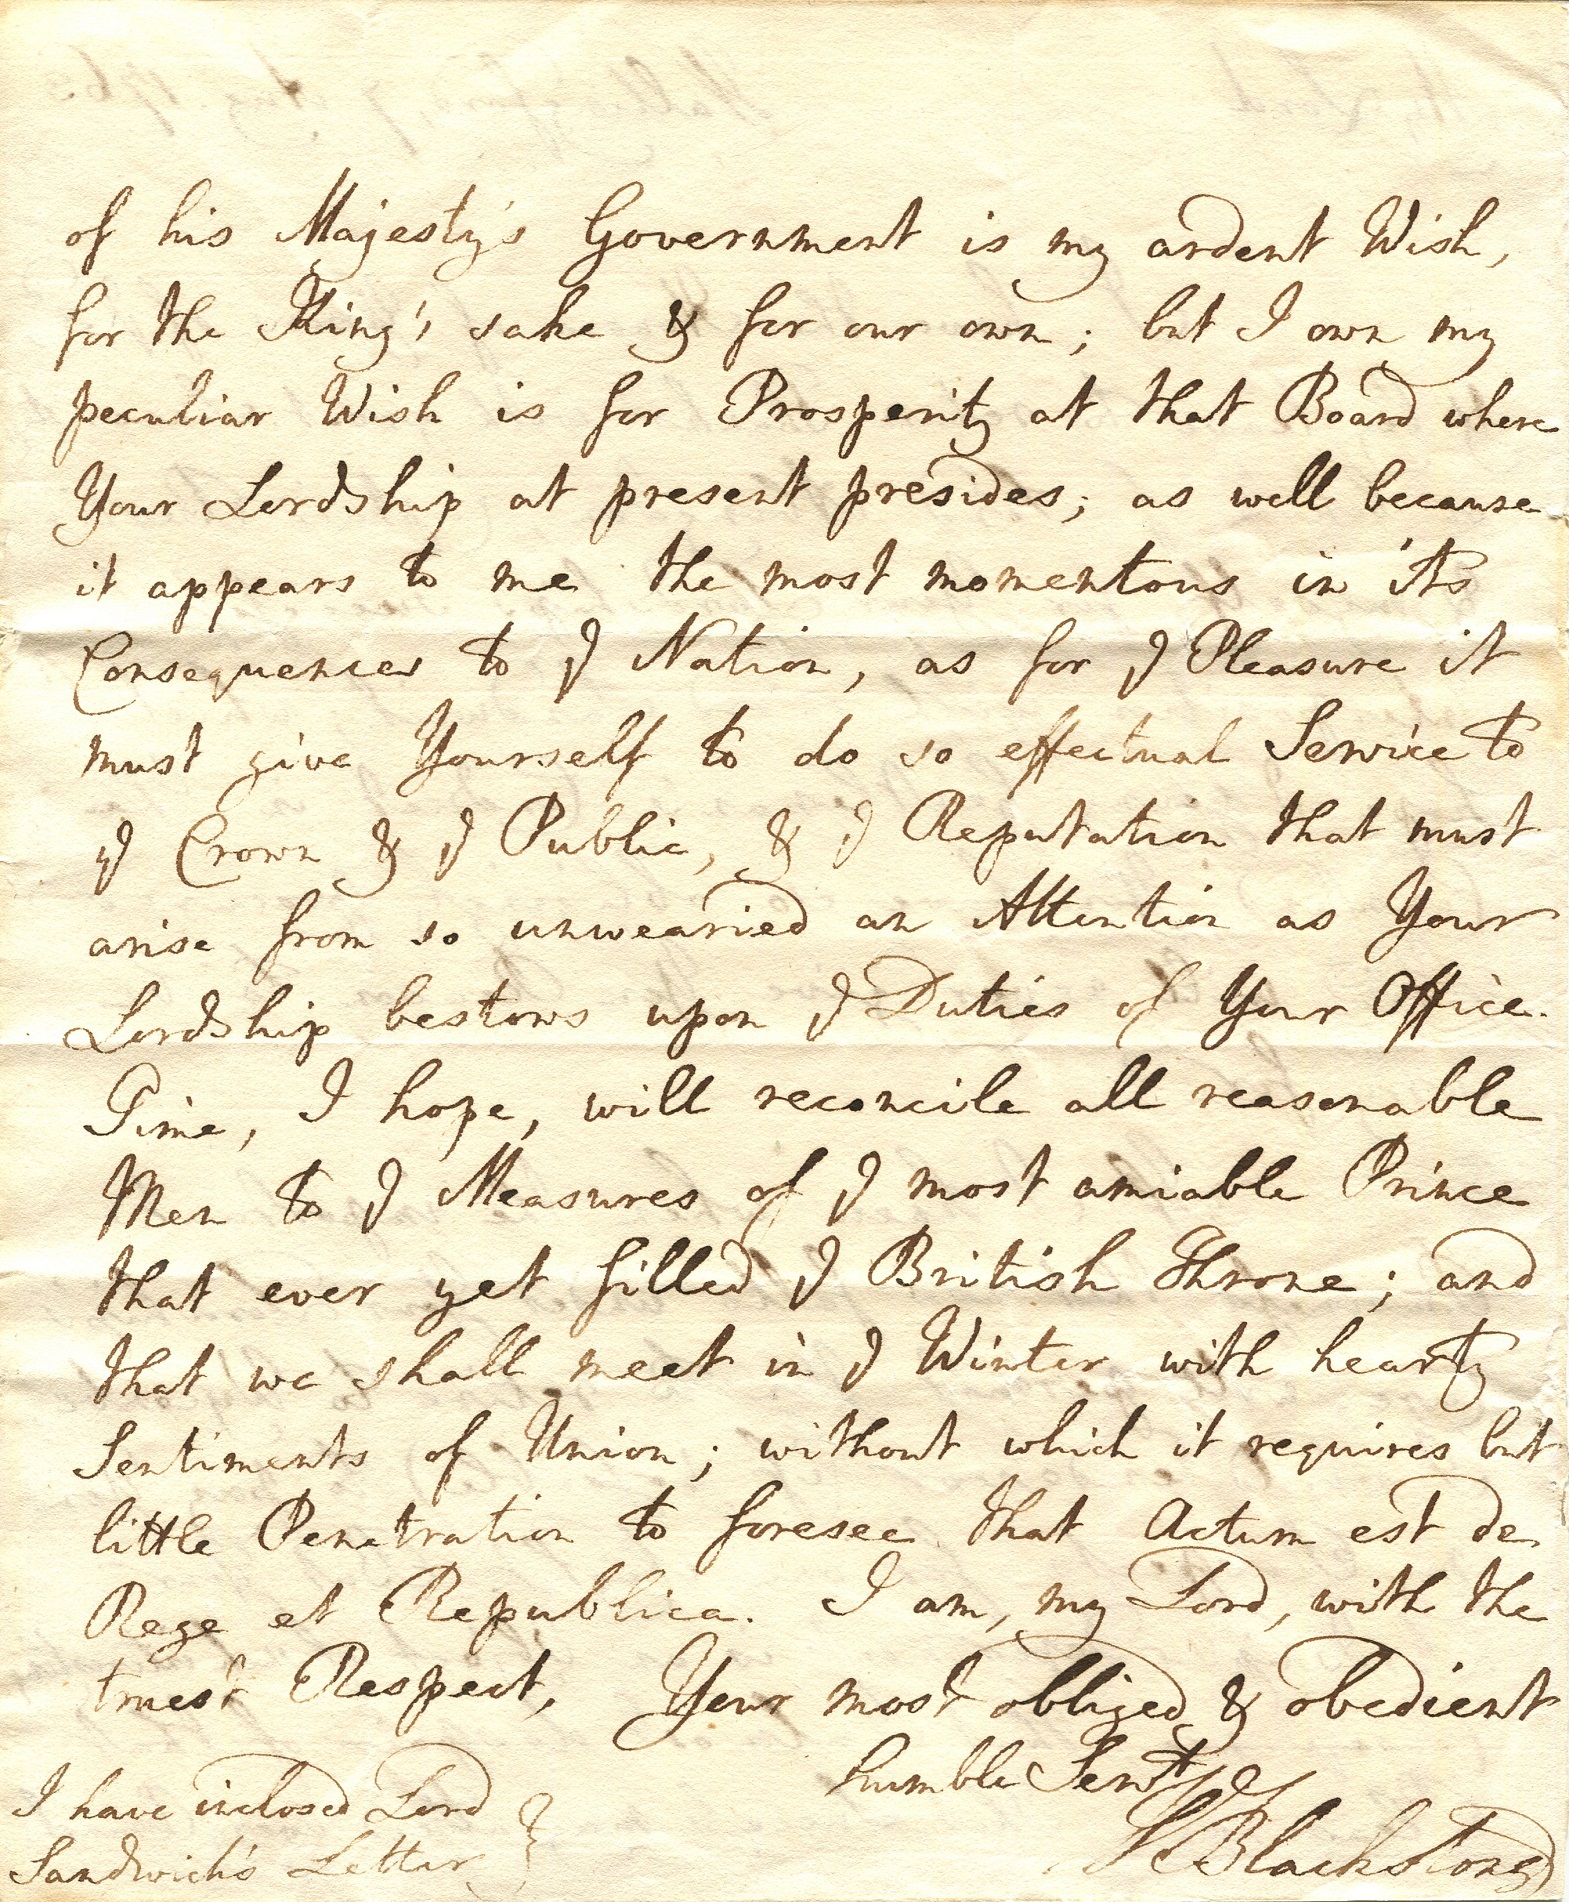 of his Majesty's Government is my ardent Wish,
for the King's sake & for our own; but I own my
peculiar Wish is for Prosperity at that Board where
Your Lordship at present presides; as well because
it appears to me the most momentous in it's
Consequences to ye Nation, as for ye Pleasure it
must give Yourself to do so effectual Service to
ye Crown & ye Public, & ye Reputation that must
arise from so unwearied an Attention as Your
Lordship bestows upon ye Duties of Your Office.
Time, I hope, will reconcile all reasonable
Men to ye Measures of ye most amiable Prince
that ever yet filled ye British Throne; and
that we shall meet in ye Winter with hearty
Sentiments of Union; without which it requires but
little Penetration to foresee that Actum est de
Rege et Republica. I am, my Lord, with the
truest Respect, Your most obliged & obedient
humble Servt
Blackstone
I have inclosed Lord
Sandwich's Letter